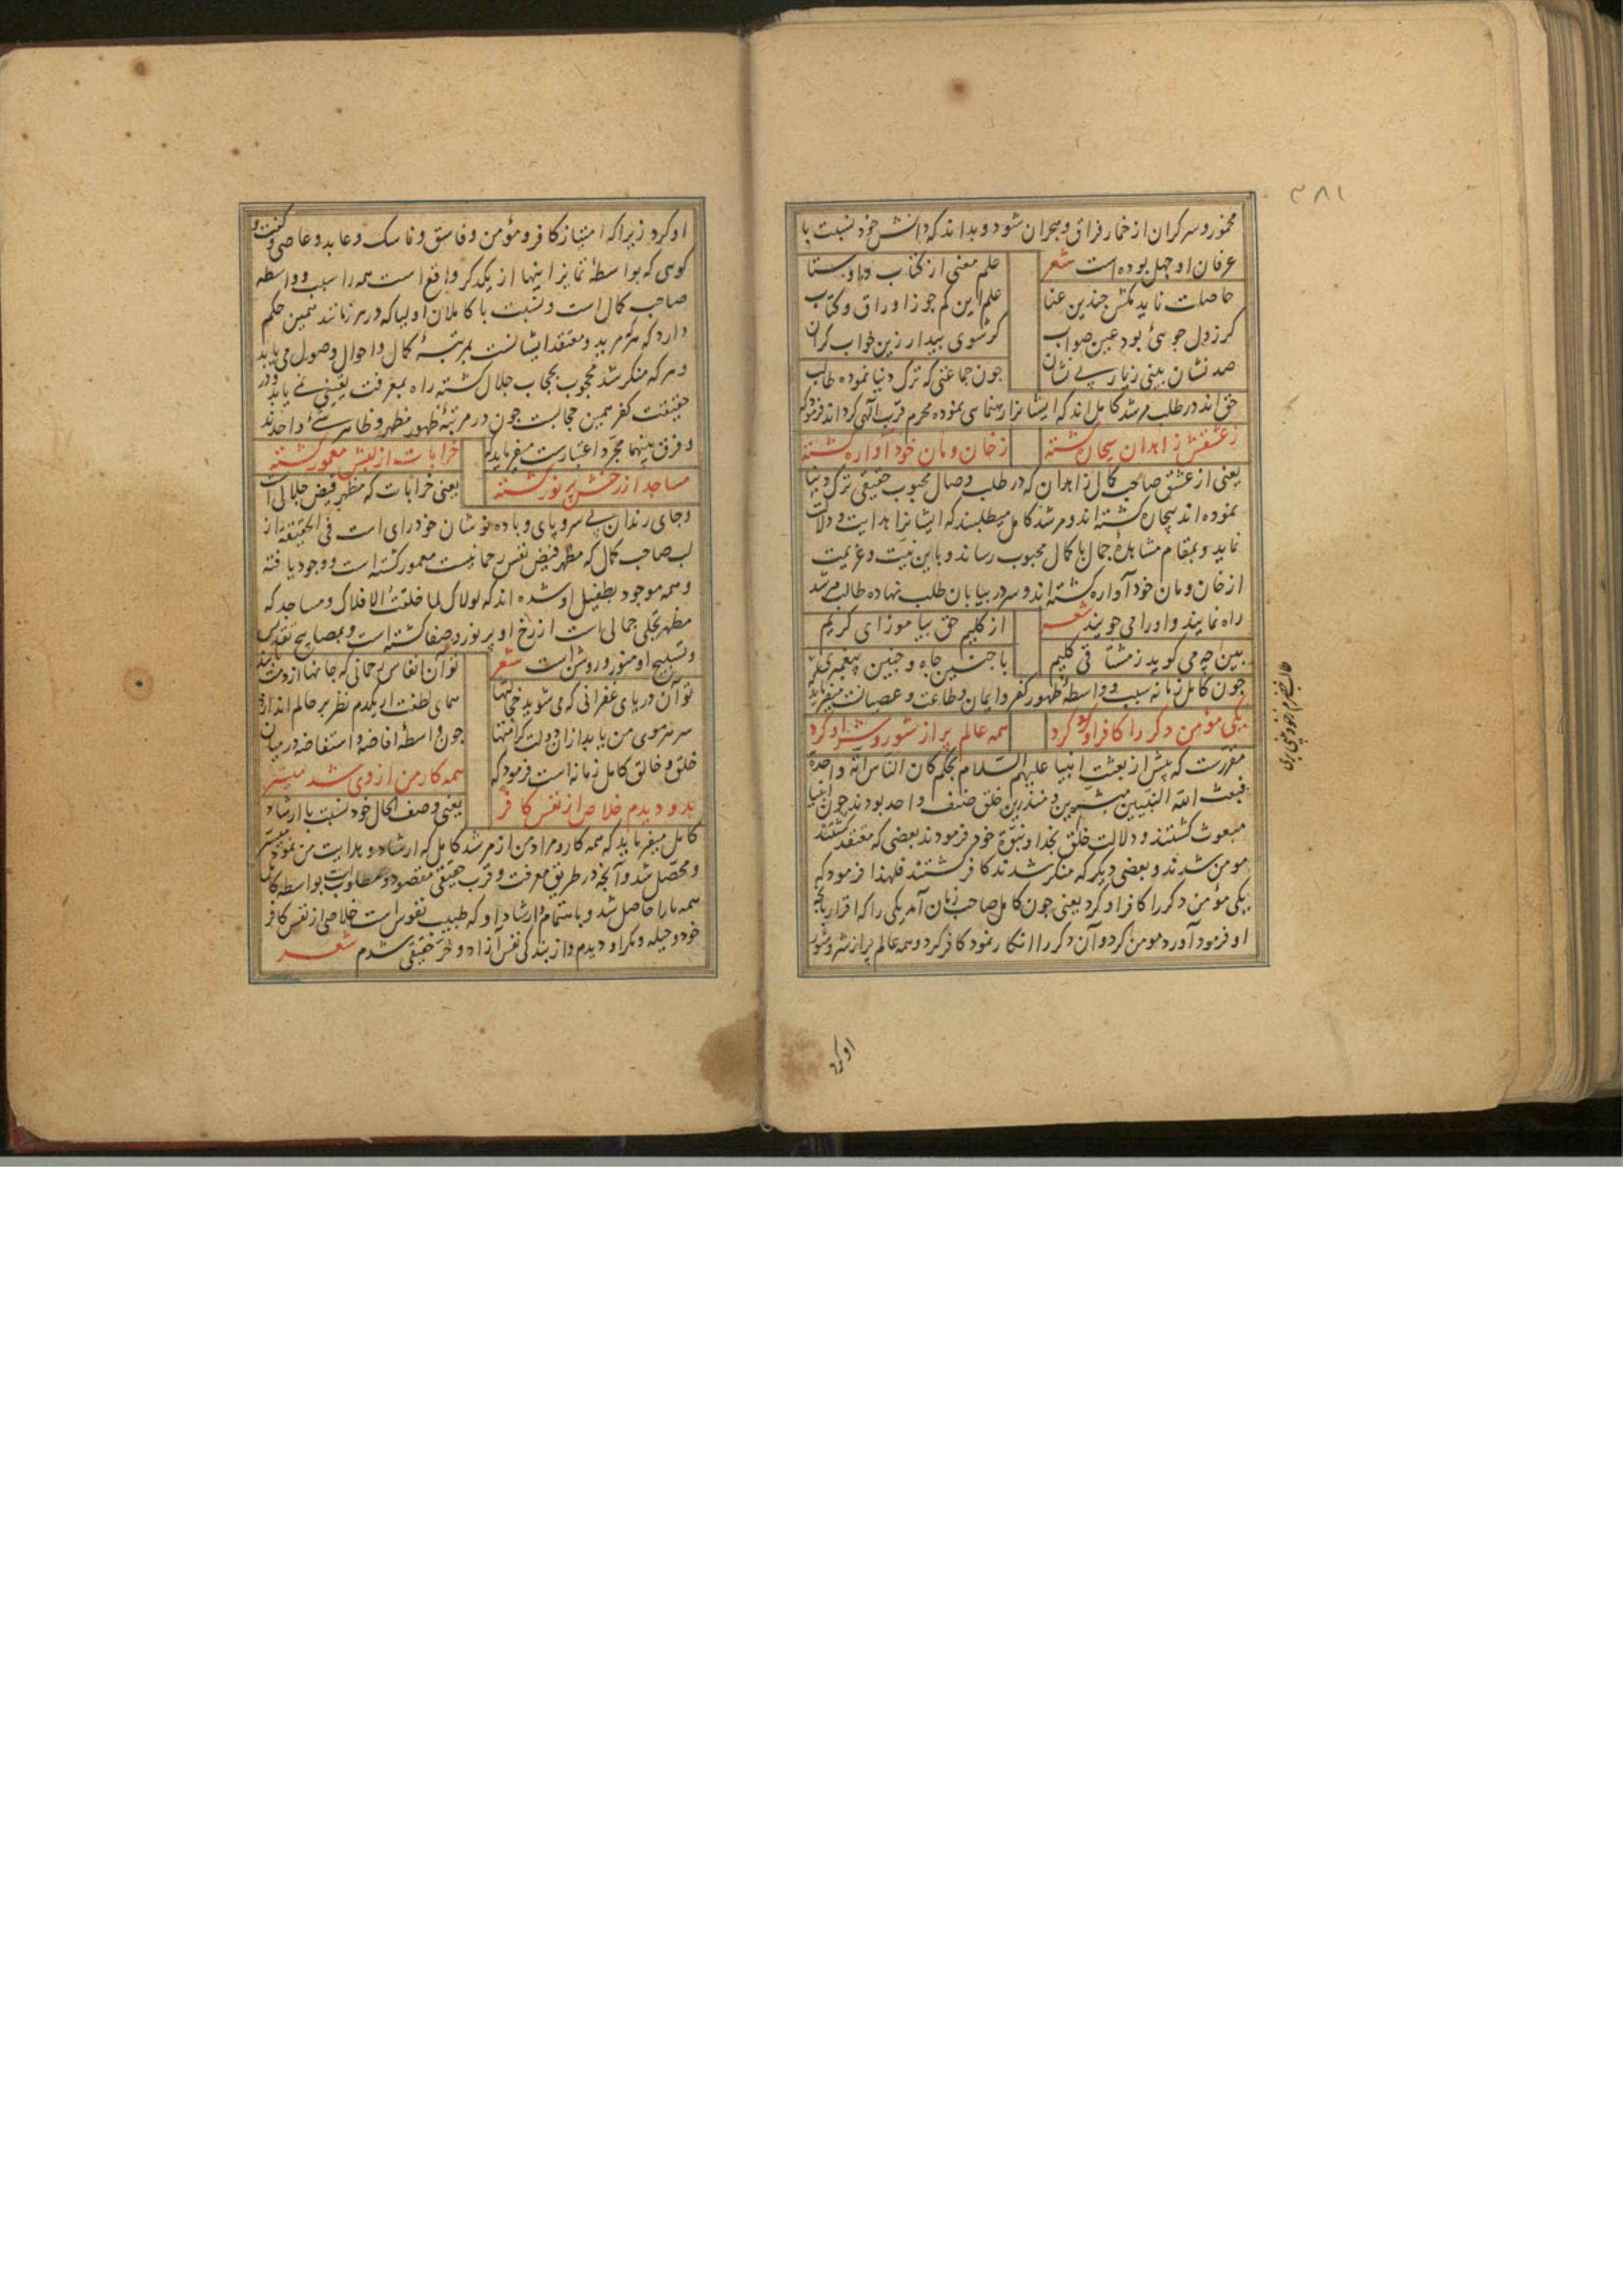 ۳۸۱
مخمور و سرکران از خمار فراق و هجران شود و بداند که دانش خود نسبت با
عرفان او جهل بوده است شعر
علم معنی از کتاب و اوستا
حاصلت ناید مکش چندین عنا
علم این کم جو ز اوراق و کتاب
کر ز دل جوسی بود عین صواب
کر شوی بیدار زین خواب کران
صد نشان بینی ز یار بی نشان
جون جماعتی که ترک دنیا نموده طالب
حق اند در طلب مرشد کامل اند که ایشانرا رهنمای نموده محرم قرب الهی کرداند فرمود که
ز عشقش زاهدان بیچاره کشته
ز خان و مان خود آواره کشته
یعنی از عشق صاحب کمال زاهدان که در طلب وصال محبوب حقیقی ترک دنیا
نموده اند بیچاره کشته اند و مرشد کامل میطلبند که ایشانرا هدایت و دلالت
نماید و بمقام مشاهدهٔ جمال با کمال محبوب رساند و باین نیت و عزیمت
از خان و مان خود آواره کشته اند و سر در بیابان طلب نهاده طالب مرشد
راه نمایند و او را می جویند شعر
از کلیم حق بیاموز ای کریم
ببین چه می کوید ز مشتاقی کلیم
با چنین جاه و چنین پیغمبری
طالب خضرم ز خود بینی بری
جون کامل زمانه سبب و واسطهٔ ظهور کفر و ایمان و طاعت و عصیانست میفرماید
یکی مؤمن دکر را کافر او کرد
همه عالم پر از شور و شر او کرد
مقررست که پیش از بعثت انبیا علیهم السلام بحکم کان الناس امة واحدة
فبعث الله النبیین مبشرین و منذرین خلق صنف واحد بودند جون انبیا
مبعوث کشتند و دلالت خلق بخدا و نبوة خود فرمودند بعضی که معتقد کشتند
مومن شدند و بعضی دیکر که منکر شدند کافر کشتند فلهذا فرمود که
یکی مؤمن دکر را کافر او کرد یعنی جون کامل صاحب زمان آمد یکی را که اقرار بانچه
او فرمود آورد مومن کرد و آن دکر را انکار نمود کافر کرد و همه عالم پر از شر و شور
او کرد
او کرد زیرا که امتیاز کافر و مؤمن و فاسق و ناسک و عابد و عاصی و کنشت و
کوی که بواسطهٔ تمایز اینها از یکدکر واقع است همه را سبب و واسطه
صاحب کمال است و نسبت با کاملان اولیا که در هر زمانند همین حکم
دارد که هر که مرید و معتقد ایشانست بمرتبهٔ کمال و احوال وصول می یابد
و هر که منکر شد محجوب بحجاب جلال کشته راه بمعرفت یقینی نمی یابد و در
حقیقت کفر همین حجابست جون در مرتبهٔ ظهور مظهر و ظاهر شئ واحدند
و فرق بینهما مجرد اعتبارست میفرماید که
خرابات از لبش معمور کشته
مساجد از رخش پر نور کشته
یعنی خرابات که مظهر فیض جلالی است
و جای رندان بی سر و پای و باده نوشان خود رای است فی الحقیقة از
لب صاحب کمال که مظهر فیض نفس رحمانیست معمور کشته است و وجود یافته
و همه موجود بطفیل او شده اند که لولاک لما خلقت الافلاک و مساجد که
مظهر تجلی جمالی است از رخ او پر نور و صفا کشته است و بمصابیح تقدیس
و تسبیح او منور و روشن است شعر
تو آن انفاس رحمانی که جانها از دمت
تو آن دریای غفرانی که می شوید
همای لطفت ار یکدم نظر بر حالم اندازد
سر هر موی من یابد از آن دولت کرامتها
جون واسطهٔ افاضه و استفاضه در میان
خلق و خالق کامل زمانه است فرمود که
همه کار من از وی شد میسر
بدو دیدم خلاص از نفس کافر
یعنی وصف الحال خود نسبت با ارشاد
کامل میفرماید که همه کار و مراد من از مرشد کامل که ارشاد و هدایت من نمود میسر
و محصل شد و آنچه در طریق معرفت و قرب حقیقی مقصود و مطلوب است بواسطه کامل
همه ما را حاصل شد و باهتمام و ارشاد او که طبیب نفوس است خلاصی از نفس کافر
خود و حیله و مکر او دیدم و از بندکی نفس آزاد و حر حقیقی شدم شعر